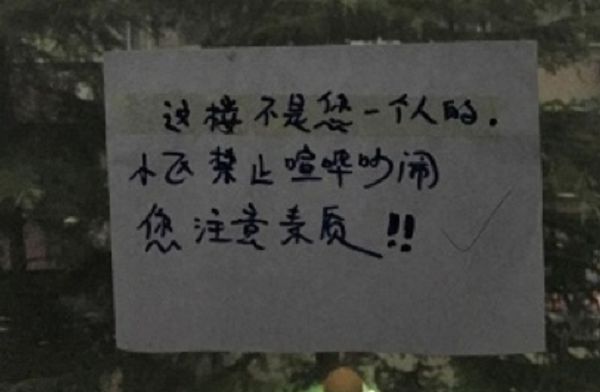 这楼不是您一个人的.
小区禁止喧哗吵闹
您注意素质!!